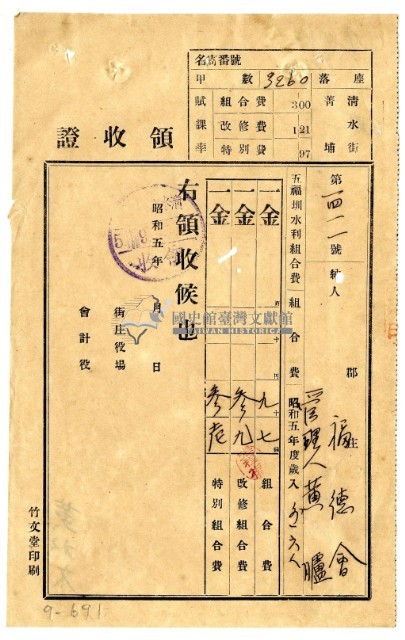 領收證
名寄番號
甲數 3260
賦課率
組合費 300
改修費 1 21
特別費 97
座落 清水街 菩埔
第一四二號 納人 郡 庄
福德會
管理人 黃臚
五福圳水利組合費 組合費 昭和五年度歲入
一金 九七 組合費
一金 參九 改修組合費
一金 參 特別組合費
右領收候也
昭和五年 月 日
街庄役場
會計役
竹文堂印刷
國史館臺灣文獻館
TAIWAN HISTORICA
9-691